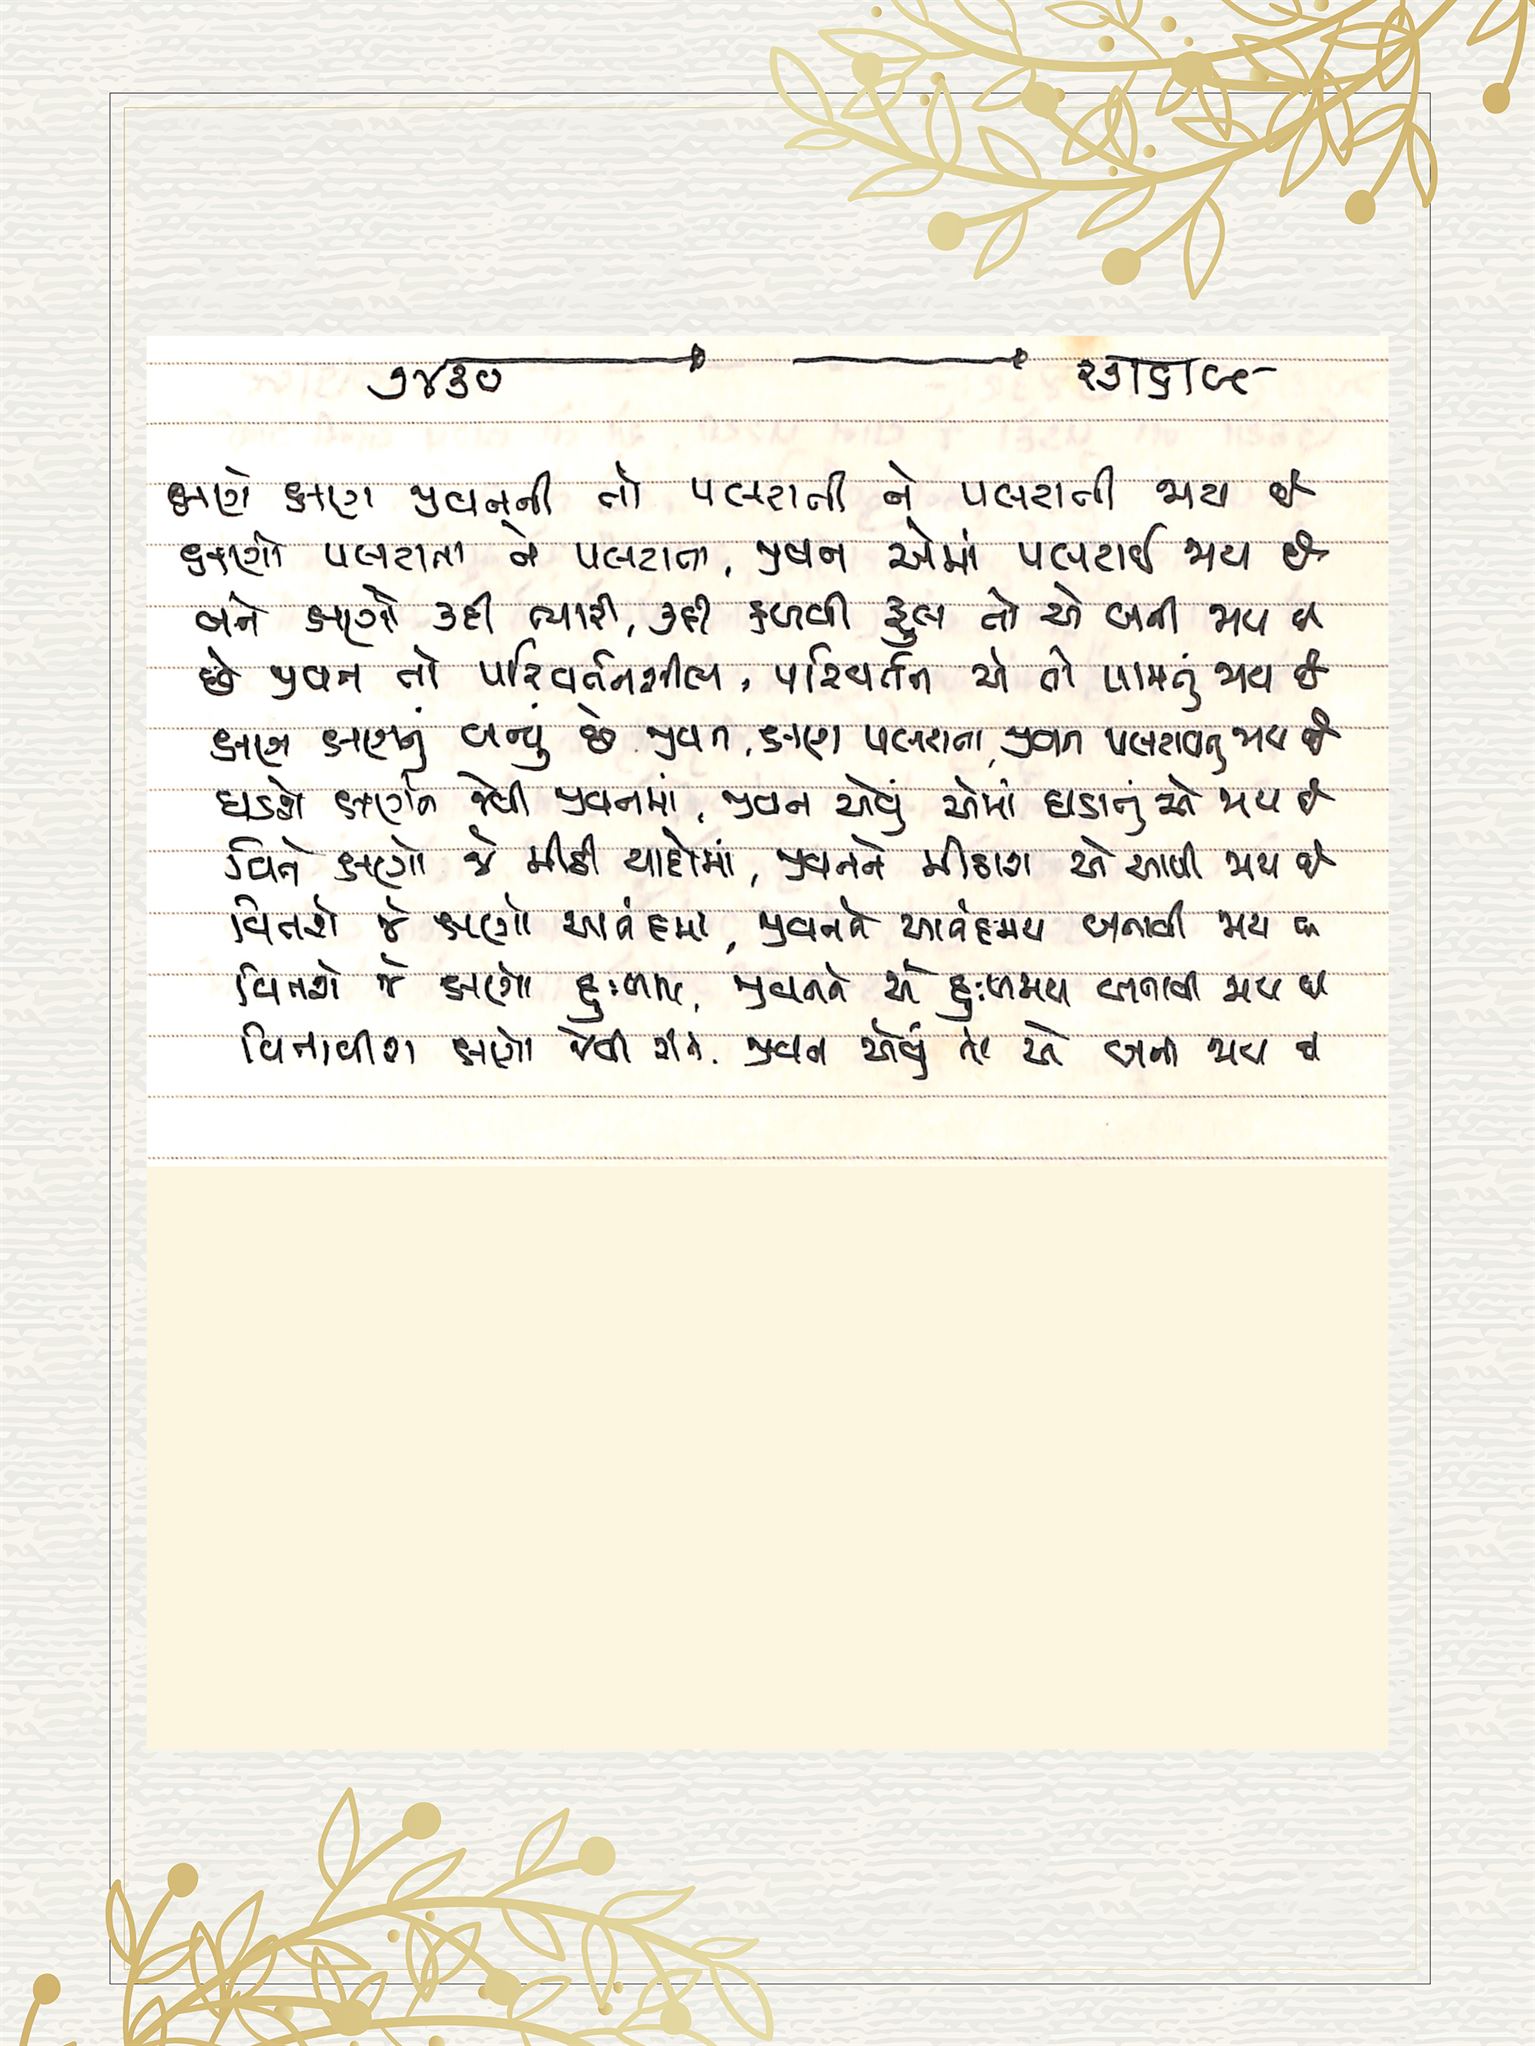 ૭૪૩૦
ક્ષણે ક્ષણ જીવનની તો પલટાતી ને પલટાતી જાય છે
ક્ષણો પલટાતા ને પલટાતા, જીવન એમાં પલટાઈ જાય છે
બને ક્ષણો રૂદી ત્યારી, રૂદી ફળવી ફૂલ તો એ બની જાય છે
છે જીવન તો પરિવર્તનશીલ, પરિવર્તન એ તો પામતું જાય છે
ક્ષણ ક્ષણનું બન્યું છે જીવન, ક્ષણ પલટાતા, જીવન પલટાવતુ જાય છે
ઘડશે ક્ષણને જેવી જીવનમાં, જીવન એવું એમાં ઘડાતું એ જાય છે
વિતે ક્ષણો જે મીઠી યાદોમાં, જીવનને મીઠાશ એ આપી જાય છે
વિતશે જે ક્ષણો આનંદમાં, જીવનને આનંદમય બનાવી જાય છે
વિતશે જે ક્ષણો દુઃખમાં, જીવનને એ દુઃખમય બનાવી જાય છે
વિતાવીશ ક્ષણો જેવી રીતે, જીવન એવું તો એ બની જાય છે